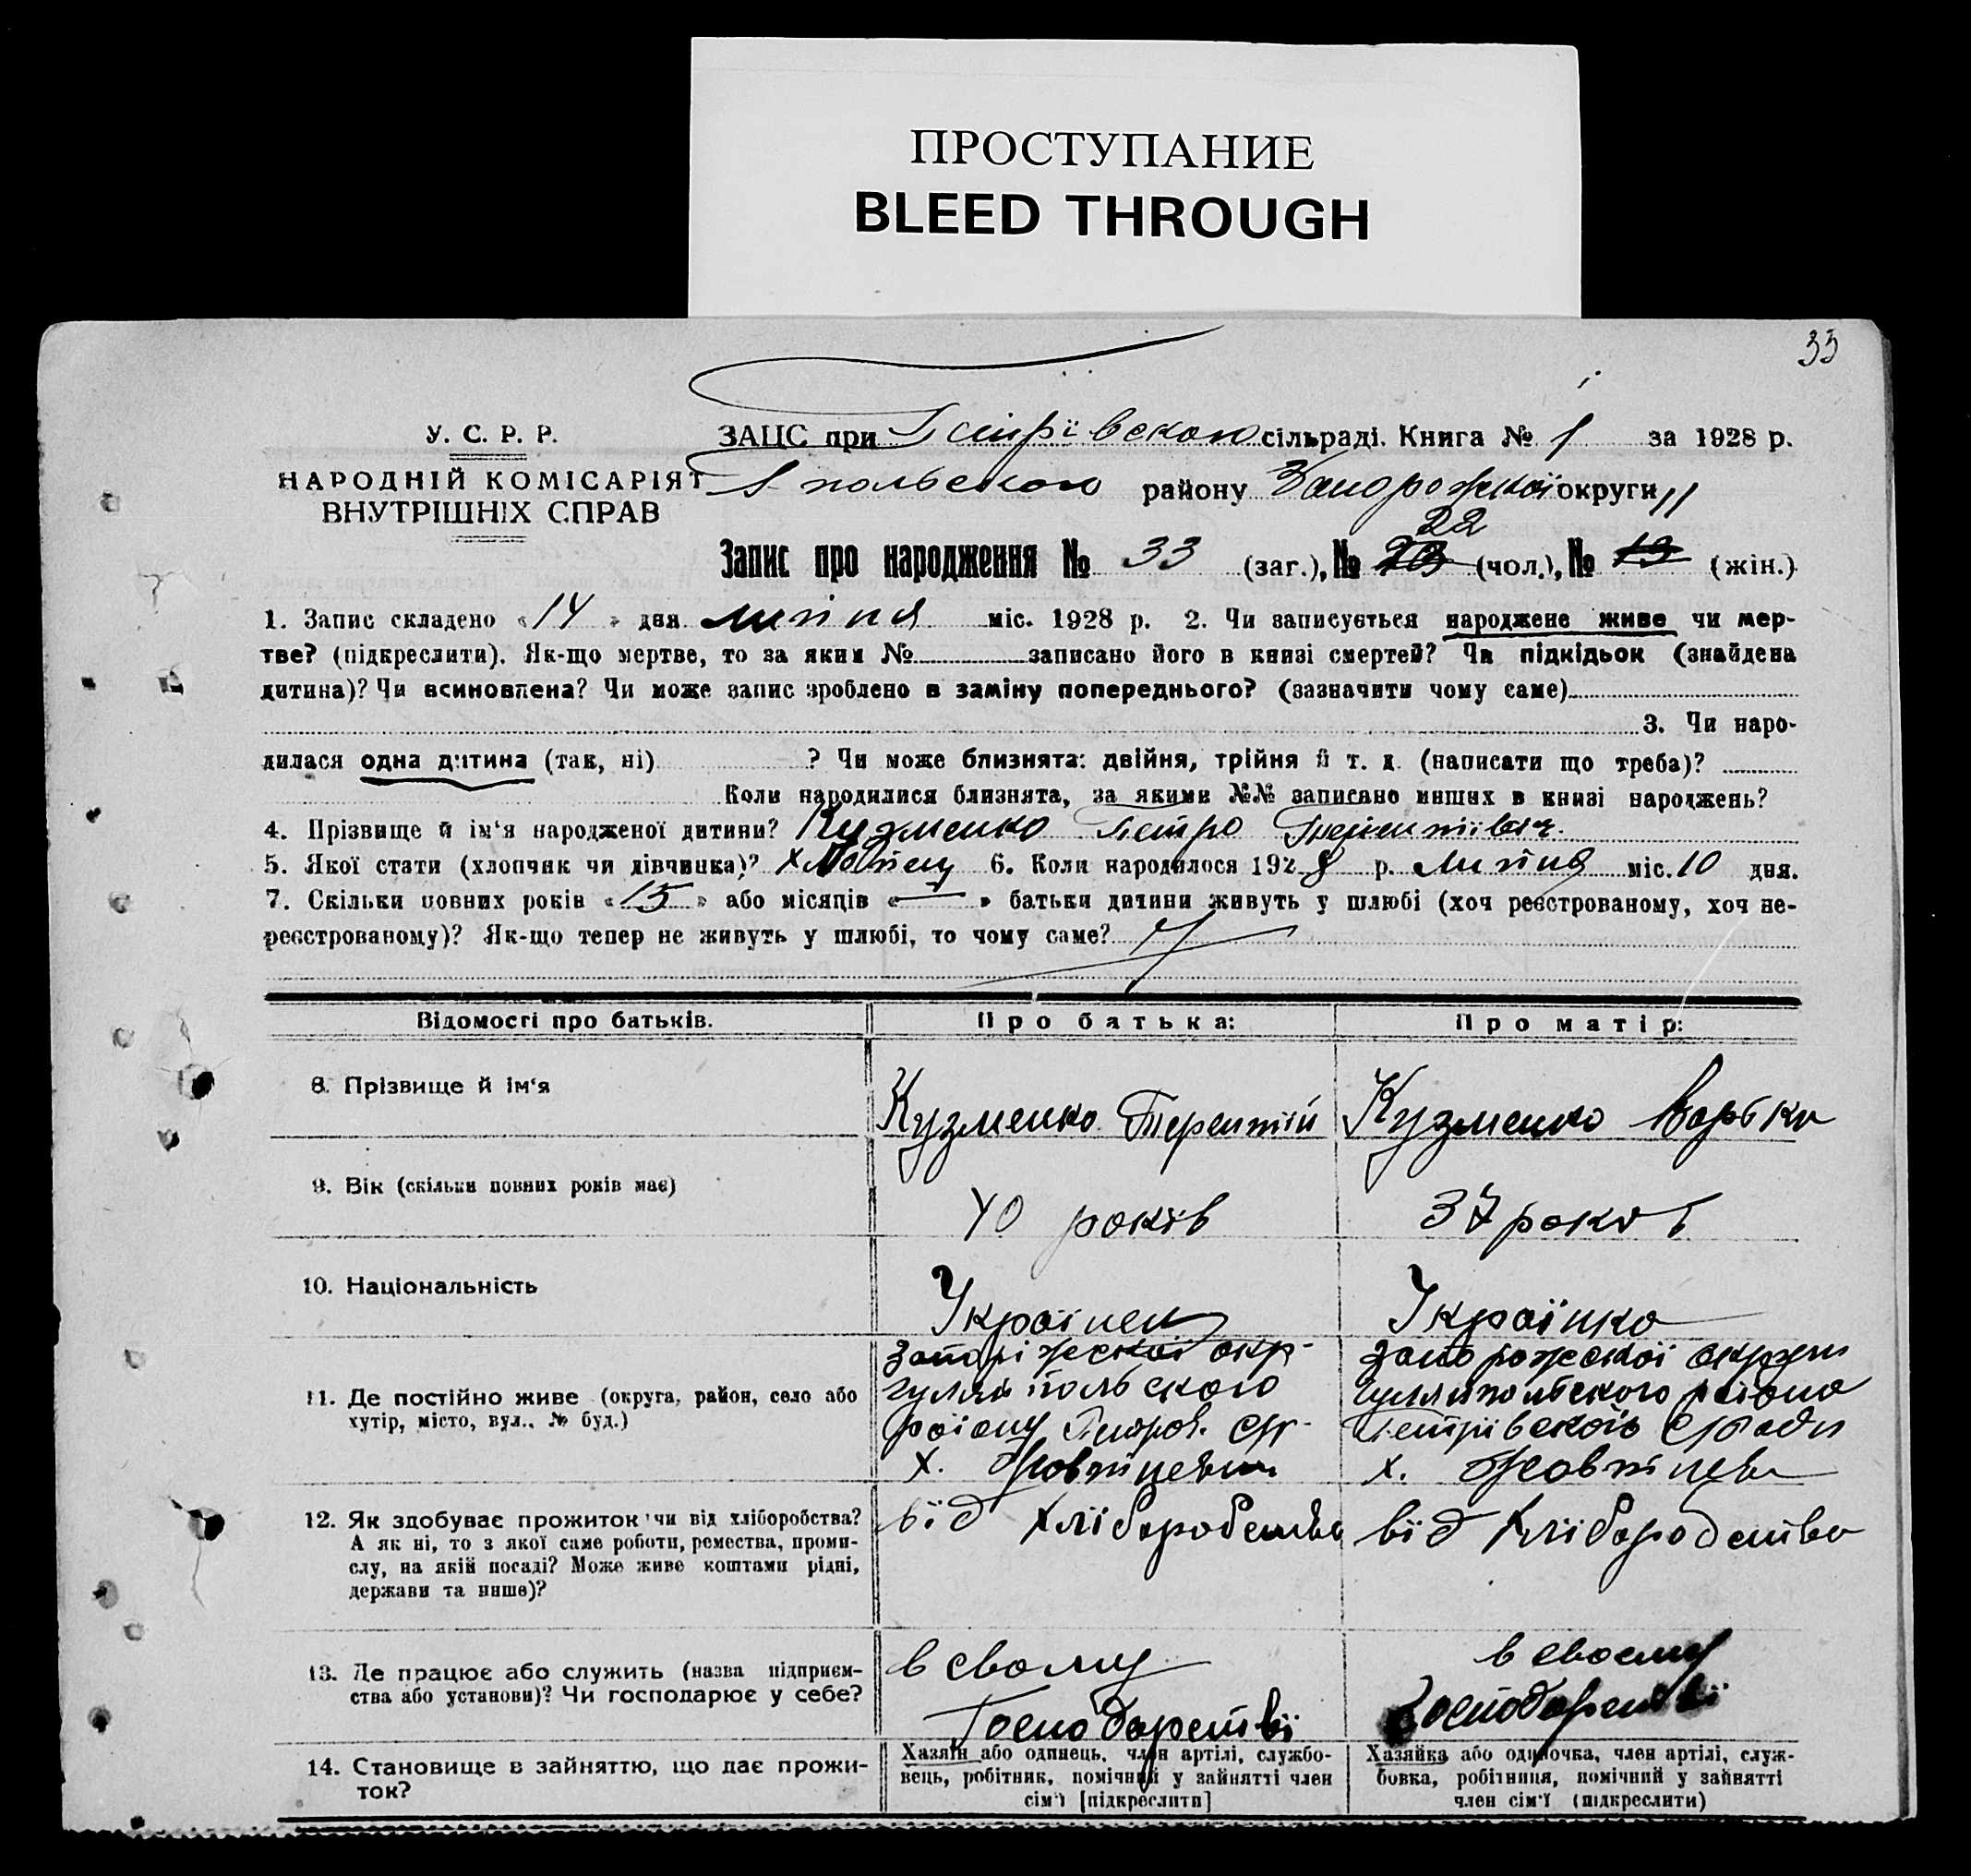 ПРОСТУПАНИЕ
BLEED THROUGH
33
У. С. Р. Р.
НАРОДНІЙ КОМІСАРІЯТ
ВНУТРІШНІХ СПРАВ
ЗАЦС при Петрівскою сільраді. Книга № 1 за 1928 р.
польского району Запорожскої округи
22
Запис про народження № 33 (заг.), № (чол.), № 13 (жін.)
1. Запис складено «14» дня липня міс. 1928 р. 2. Чи записується народжене живе чи мер-
тве? (підкреслити). Як-що мертве, то за яким № записано його в книзі смертей? Чи підкідьок (знайдена
дитина)? Чи всиновлена? Чи може запис зроблено в заміну попереднього? (зазначити чому саме)
3. Чи наро-
дилася одна дитина (так, ні) ? Чи може близнята: двійня, трійня й т. д. (написати що треба)?
Коли народилися близнята, за якими №№ записано инших в книзі народжень?
4. Прізвище й ім'я народженої дитини? Кузменко Петро Терентіївич
5. Якої стати (хлопчик чи дівчинка)? Хлопець 6. Коли народилося 1928 р. Липня міс. 10 дня.
7. Скільки повних років «15» або місяців «—» батьки дитини живуть у шлюбі (хоч реєстрованому, хоч не-
реєстрованому)? Як-що тепер не живуть у шлюбі, то чому саме?
Відомості про батьків. Про батька: Про матір:
8. Прізвище й ім'я Кузменко Терентій Кузменко Варька
9. Вік (скільки повних років має) 40 років 37 років
10. Національність Українец Українка
11. Де постійно живе (округа, район, село або
хутір, місто, вул., № буд.)
Запоріжескої окр-
гуляйпольского
району Петров. с/р-
х.
Запорожескої округи
Гуляйпольского району
Петрівскої с/ради
х.
12. Як здобуває прожиток чи від хліборобства?
А як ні, то з якої саме роботи, ремества, проми-
слу, на якій посаді? Може живе коштами рідні,
держави та инше)?
від хліборобства від хліборобства
13. Де працює або служить (назва підприєм-
ства або установи)? Чи господарює у себе?
в свому
Господарстві
в своему
Господарстві
14. Становище в зайняттю, що дає прожи-
ток?
Хазяїн або одинець, член артілі, службо-
вець, робітник, помічний у зайнятті член
сім'ї [підкреслити]
Хазяйка або одиночка, член артілі, служ-
бовка, робітниця, помічний у зайнятті
член сім'ї (підкреслити)